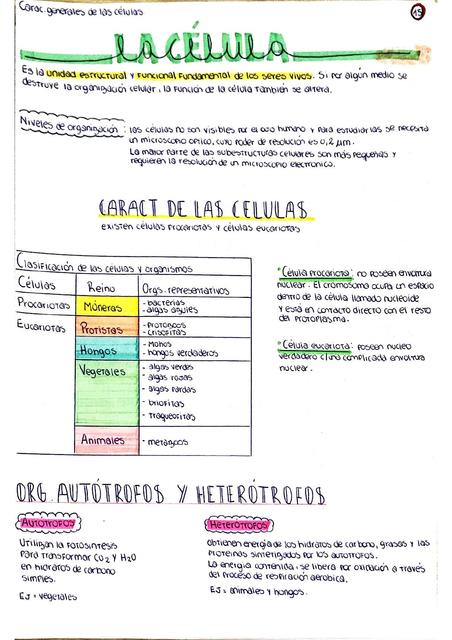 Carac. generales de las células
15
LA CÉLULA
Es la unidad estructural y funcional fundamental de los seres vivos. Si por algún medio se
destruye la organización celular, la función de la célula también se altera.
Niveles de organización: las células no son visibles por el ojo humano y para estudiarlas se necesita
un microscopio optico, cuyo poder de resolución es 0,2 µm.
La mayor parte de las subestructuras celulares son más pequeñas y
requieren la resolución de un microscopio electronico.
CARACT DE LAS CELULAS
existen células procariotas y células eucariotas
Clasificación de las células y organismos
Células Reino Orgs. representativos
Procariotas Móneras - bacterias
- algas azules
Eucariotas Protistas - protozoos
- crisofitas
Hongos - Mohos
- hongos verdaderos
Vegetales - algas verdes
- algas rojas
- algas pardas
- briofitas
- traqueofitas
Animales - metazoos
* Célula procariota: no poseen envoltura
nuclear. El cromosoma ocupa un espacio
dentro de la célula llamado nucleoide
y está en contacto directo con el resto
del protoplasma.
* Célula eucariota: poseen núcleo
verdadero c/una complicada envoltura
nuclear.
ORG. AUTÓTROFOS Y HETERÓTROFOS
AUTÓTROFOS
Utilizan la fotosíntesis
para transformar CO2 y H2O
en hidratos de carbono
simples.
EJ = vegetales
HETERÓTROFOS
obtienen energía de los hidratos de carbono, grasas y las
proteínas sintetizados por los autotrofos.
La energía contenida, se libera por oxidación a través
del proceso de respiración aerobica.
EJ = animales y hongos.